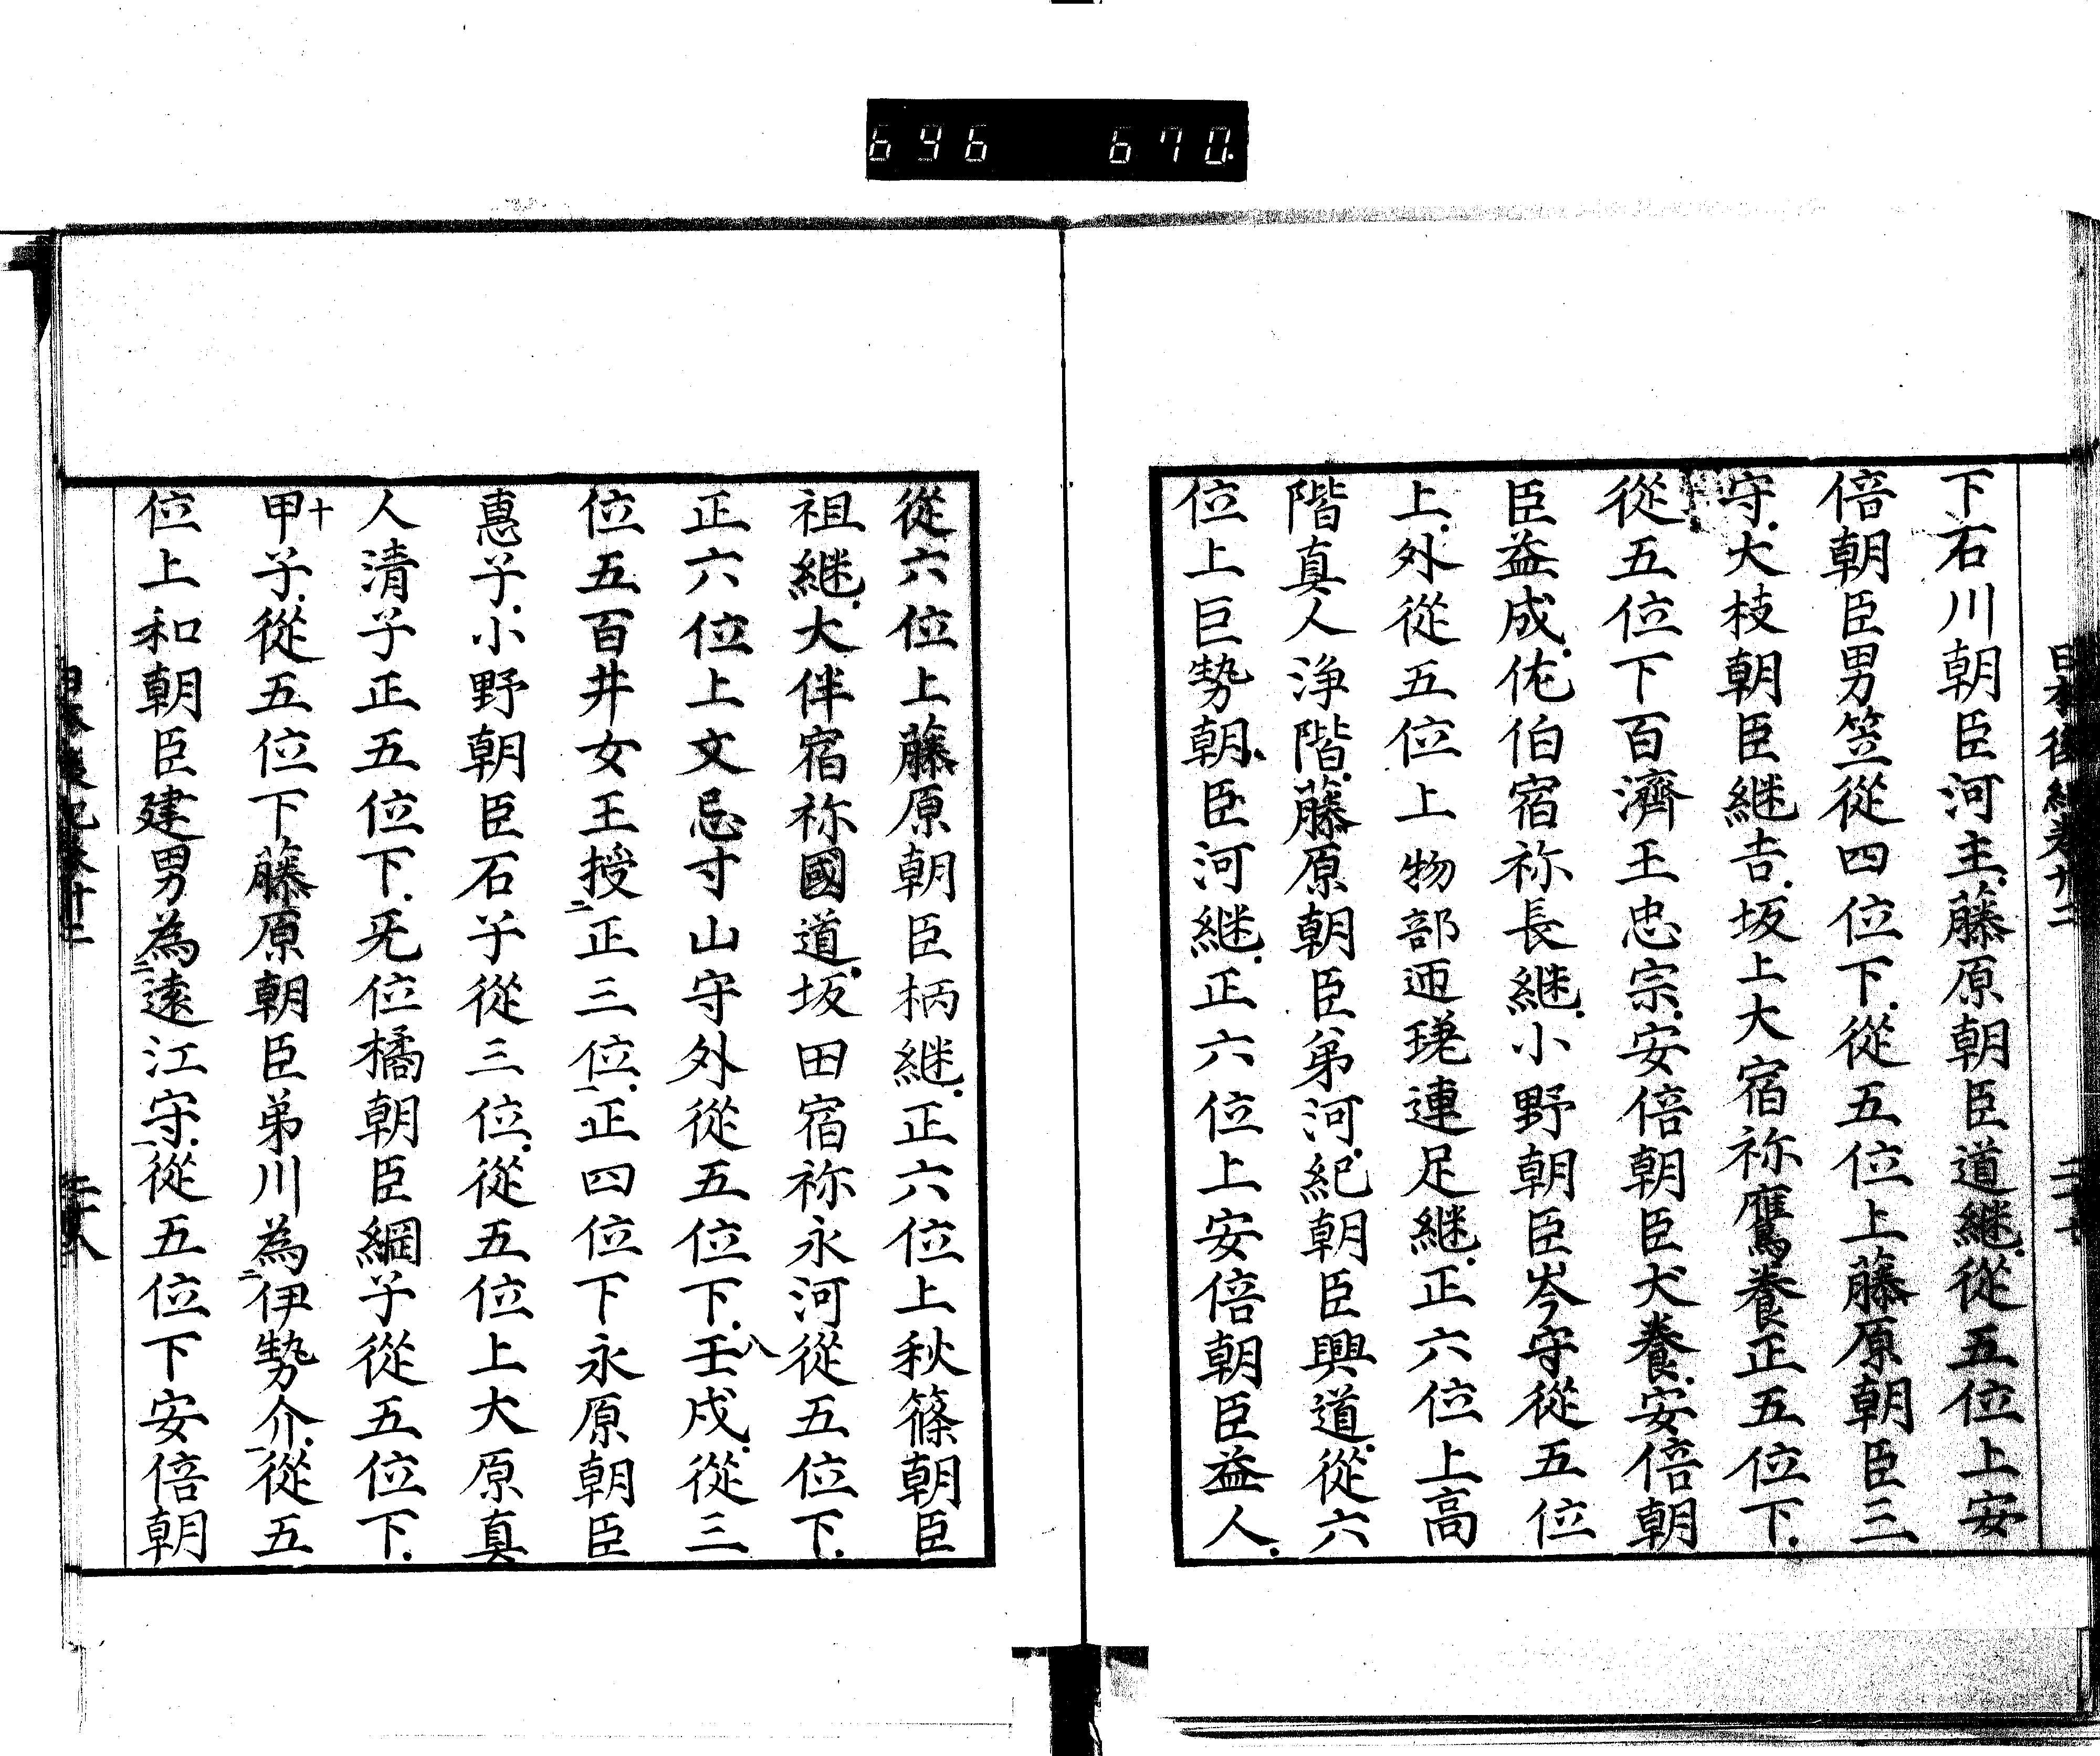 646 670.
日本後紀卷廿二
下石川朝臣河主藤原朝臣道継從五位上安
倍朝臣男笠從四位下從五位上藤原朝臣三
守大枝朝臣継吉坂上大宿祢鷹養正五位下
從五位下百濟王忠宗安倍朝臣犬養安倍朝
臣益成佐伯宿祢長継小野朝臣岑守從五位
上外從五位上物部匝瑳連足継正六位上高
階真人浄階藤原朝臣弟河紀朝臣興道從六
位上巨勢朝臣河継正六位上安倍朝臣益人
從六位上藤原朝臣柄継正六位上秋篠朝臣
祖継大伴宿祢國道坂田宿祢永河從五位下
正六位上文忌寸山守外從五位下壬戌八從三
位五百井女王授二正三位一正四位下永原朝臣
恵子小野朝臣石子從三位從五位上大原真
人清子正五位下旡位橘朝臣綱子從五位下
甲子十從五位下藤原朝臣弟川為二伊勢介一從五
位上和朝臣建男為二遠江守一從五位下安倍朝
日本後紀卷廿二
二十八